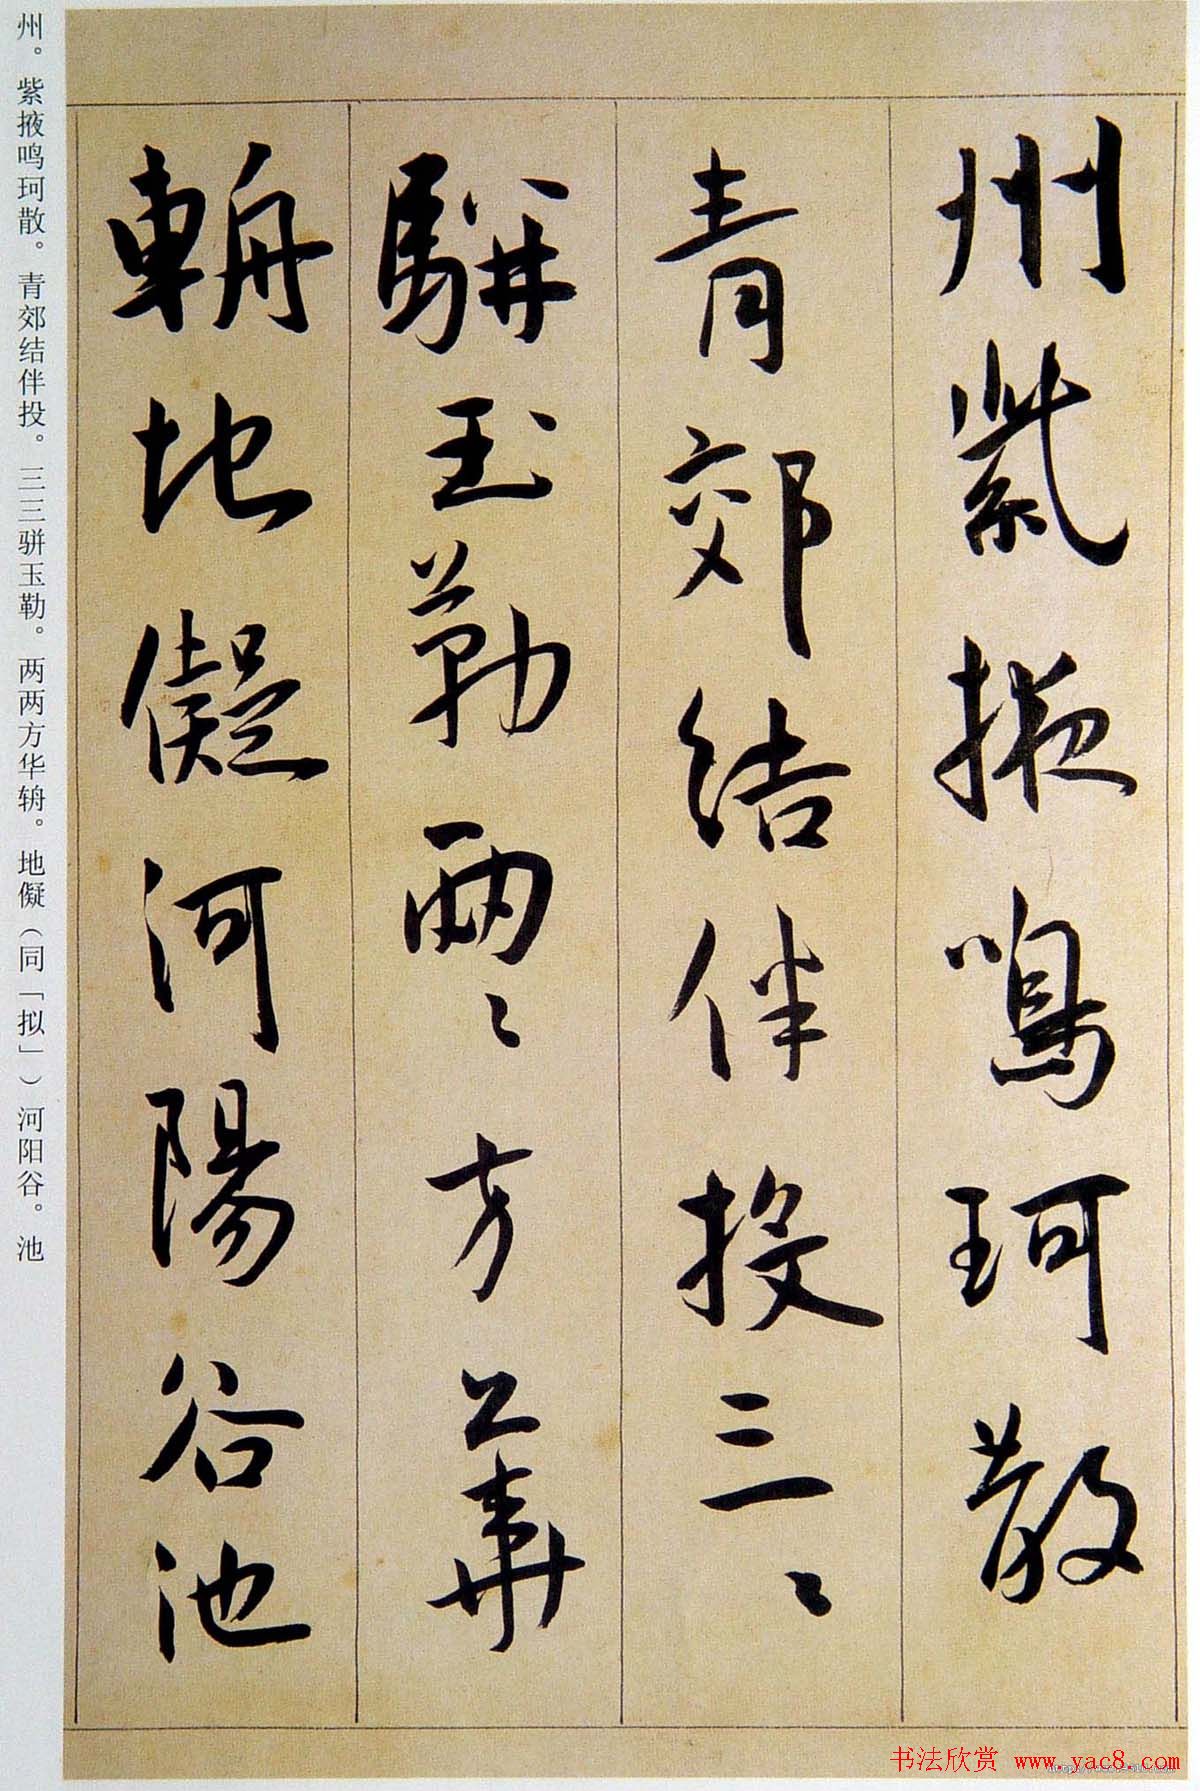 州紫掖鸣珂散
青郊结伴投三〻
骈玉勒两〻方华
輈地儗河陽谷池
州。紫掖鸣珂散。青郊结伴投。三三骈玉勒。两两方华辀。地儗（同「拟」）河阳谷。池
书法欣赏 www.yac8.com